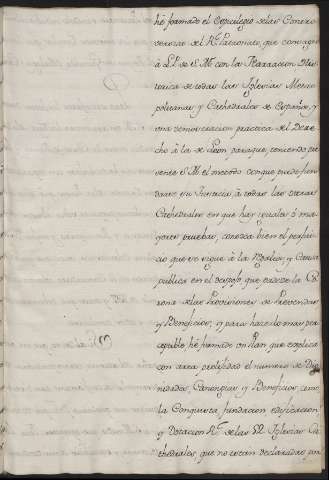 hé formado el Espicilegio de las Contro-
versias del Rl. Patronato, que consagro
á L.P. de S.M. con la Narracion His-
torica de todas las Iglesias Metro-
politanas y Cathedrales de España, y
una demonstracion practica del Dere-
cho á la de Leon, para que, teniendo pre-
sente S.M. el metodo con que puede fun-
darse su Justicia á todas las otras
Cathedrales en que hay iguales ó ma-
yores pruebas, conozca bien el perjui-
cio que se sigue á la Regalia, y Causa
publica en el despojo que padece la Co-
rona de las Provisiones de Prevendas
y Beneficios, y para hacerlo mas per-
ceptible hé formado un Plan que explica
con arta prolixidad el numero de Dig-
nidades, Canongias y Beneficios, como
la Conquista, fundacion edificacion
y Dotacion Rl. de las 52 Iglesias Ca-
thedrales que no estan declaradas por